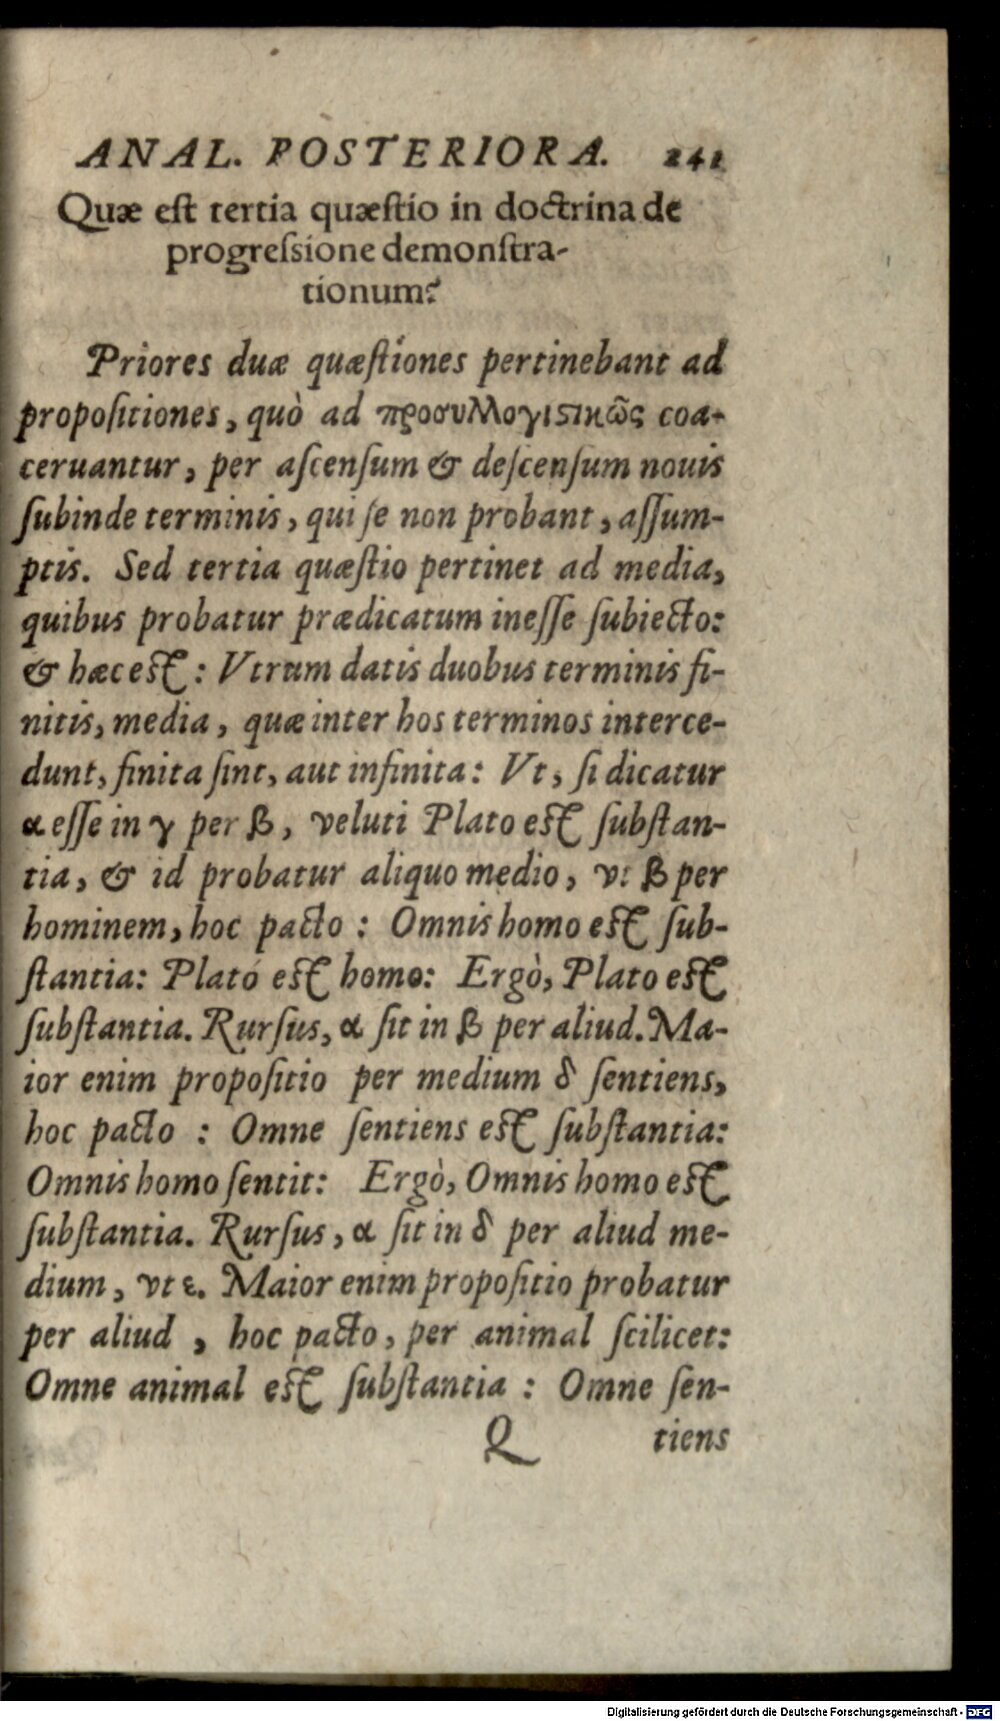 ANAL. POSTERIORA. 241
Quæ eſt tertia quæſtio in doctrina de
progreſsione demonſtra-
tionum?
Priores duæ quæſtiones pertinebant ad
propoſitiones, quò ad προσυλλογιϛικῶς coa-
ceruantur, per aſcenſum & deſcenſum nouis
ſubinde terminis, qui ſe non probant, aſſum-
ptis. Sed tertia quæſtio pertinet ad media,
quibus probatur prædicatum ineſſe ſubiecto:
& hæc eſt: Vtrum datis duobus terminis fi-
nitis, media, quæ inter hos terminos interce-
dunt, finita ſint, aut infinita: Vt, ſi dicatur
α eſſe in γ per β, veluti Plato eſt ſubſtan-
tia, & id probatur aliquo medio, vt β per
hominem, hoc pacto : Omnis homo eſt ſub-
ſtantia: Plato eſt homo: Ergò, Plato eſt
ſubſtantia. Rurſus, α ſit in β per aliud. Ma-
ior enim propoſitio per medium δ ſentiens,
hoc pacto : Omne ſentiens eſt ſubſtantia:
Omnis homo ſentit: Ergò, Omnis homo eſt
ſubſtantia. Rurſus, α ſit in δ per aliud me-
dium, vt ε. Maior enim propoſitio probatur
per aliud , hoc pacto, per animal ſcilicet:
Omne animal eſt ſubſtantia : Omne ſen-
Q tiens
Digitalisierung gefördert durch die Deutsche Forschungsgemeinschaft - DFG